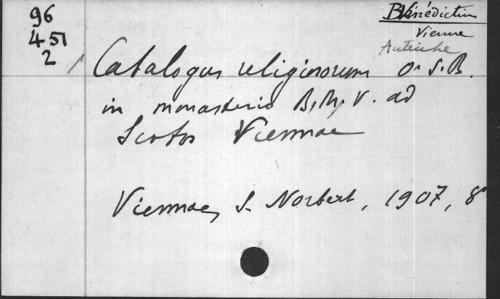 96
451
2
Bénédictins
Vienne
Autriche
Catalogus religiosorum O. S. B.
in monasterio B. M. V. ad
Scotos Viennae
Viennae, S. Norbert, 1907, 8°